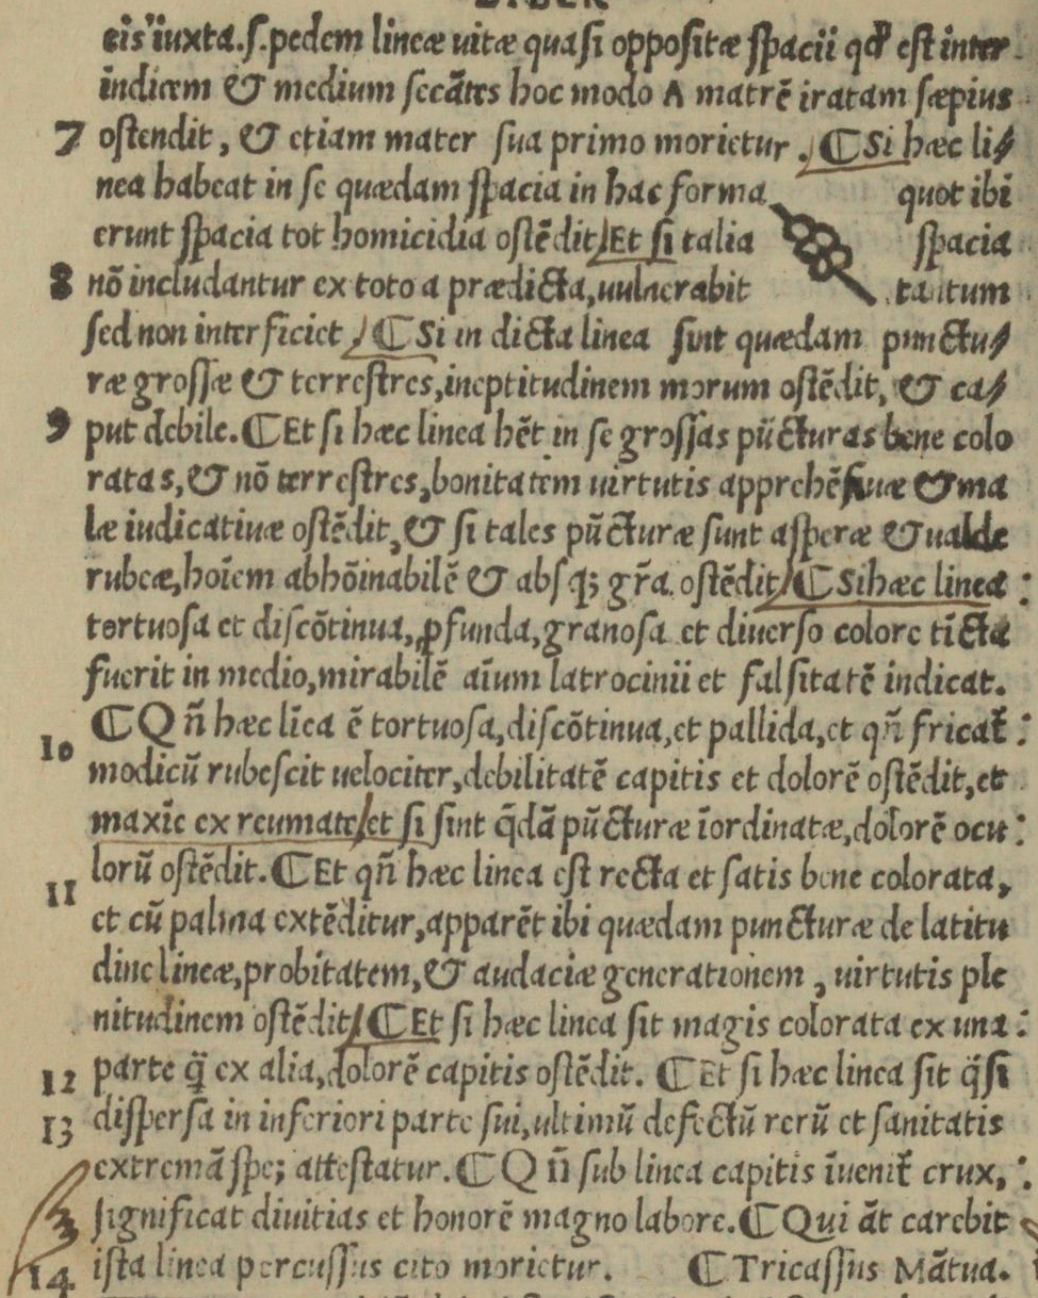 eis iuxta.ſ.pedem lineæ uitæ quaſi oppoſitæ ſpacii qđ eſt inter
indicem & medium ſecãtes hoc modo A matrẽ iratam ſæpius
7 oſtendit, & etiam mater ſua primo morietur. ¶Si hæc li/
nea habeat in ſe quædam ſpacia in hac forma quot ibi
erunt ſpacia tot homicidia oſtẽdit/Et ſi talia ſpacia
8 nõ includantur ex toto a prædicta,uulnerabit tantum
ſed non interficiet/¶Si in dicta linea ſint quædam punctu/
ræ groſſæ & terreſtres,ineptitudinem morum oſtẽdit, & ca/
9 put debile.¶Et ſi hæc linea hẽt in ſe groſſas pũcturas bene colo
ratas,& nõ terreſtres,bonitatem uirtutis apprehẽſiuæ & ma
le iudicatiuæ oſtẽdit,& ſi tales pũcturæ ſunt aſperæ & ualde
rubeæ,hoĩem abhõinabilẽ & abſq; gr̃a oſtẽdit/¶Si hæc linea :
tortuoſa et diſcõtinua,ꝓfunda,granoſa et diuerſo colore tĩcta
fuerit in medio,mirabilẽ aĩum latrocinii et falſitatẽ indicat.
¶Qñ hæc lĩea ẽ tortuoſa,diſcõtinua,et pallida,et qñ fricat̃ :
10 modicũ rubeſcit uelociter,debilitatẽ capitis et dolorẽ oſtẽdit,et
maxĩe ex reumate/et ſi ſint q̃dã pũcturæ ĩordinatæ,dolorẽ ocu :
11 lorũ oſtẽdit.¶Et qñ hæc linea eſt recta et ſatis bene colorata,
et cũ palma extẽditur,apparẽt ibi quædam puncturæ de latitu
dine lineæ,probitatem,& audaciæ generationem, uirtutis ple
nitudinem oſtẽdit/¶Et ſi hæc linea ſit magis colorata ex una :
12 parte q̃ ex alia,dolorẽ capitis oſtẽdit. ¶Et ſi hæc linea ſit q̃ſi
13 diſperſa in inferiori parte ſui,ultimũ defectũ rerũ et ſanitatis
extremã ſpe; atteſtatur.¶Qñ ſub linea capitis ĩuenit̃ crux, :
ſignificat diuitias et honorẽ magno labore.¶Qui ãt carebit
14 iſta linea percuſſus cito morietur. ¶Tricaſſus Mãtua.